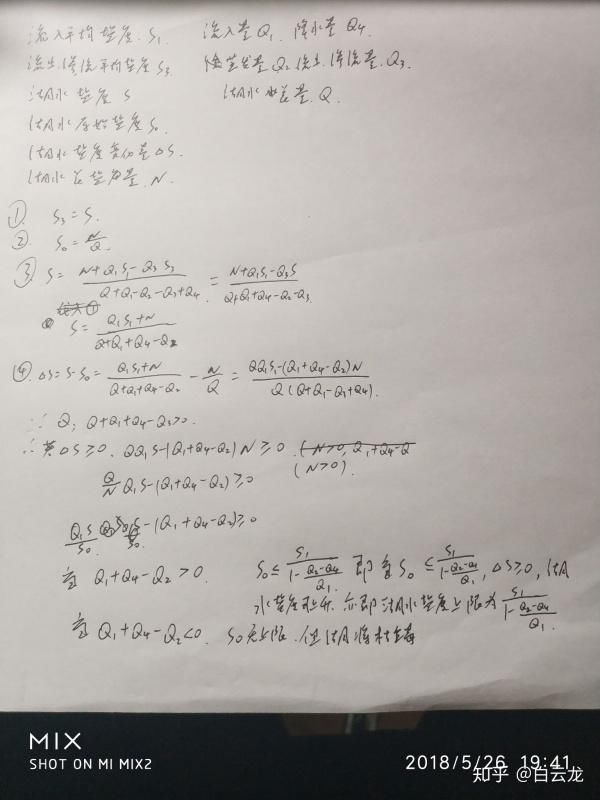 流入平均盐度 S₁ 流入量 Q₁ 降水量 Q₄
流出、渗流平均盐度 S₃ 蒸发量 Q₂ 流出、渗流量 Q₃
湖水盐度 S 湖水总量 Q.
湖水原始盐度 S₀
湖水盐度变化量 ΔS.
湖水总盐量 N.
① S₃ = S.
② S₀ = N/Q
③ S = (N+Q₁S₁-Q₃S₃)/(Q+Q₁-Q₂-Q₃+Q₄) = (N+Q₁S₁-Q₃S)/(Q+Q₁+Q₄-Q₂-Q₃)
S = (Q₁S₁+N)/(Q+Q₁+Q₄-Q₂)
④ ΔS = S-S₀ = (Q₁S₁+N)/(Q+Q₁+Q₄-Q₂) - N/Q = (QQ₁S₁-(Q₁+Q₄-Q₂)N)/(Q(Q+Q₁-Q₂+Q₄)).
∵ Q, Q+Q₁+Q₄-Q₂>0.
∴ 若 ΔS≥0, QQ₁S-(Q₁+Q₄-Q₂)N≥0 (N>0, Q₁+Q₄-Q
(N>0).
Q/N Q₁S-(Q₁+Q₄-Q₂)≥0
Q₁S/S₀ -(Q₁+Q₄-Q₂)≥0
若 Q₁+Q₄-Q₂>0. S₀≤S₁/(1-(Q₂-Q₄)/Q₁) 即当 S₀≤S₁/(1-(Q₂-Q₄)/Q₁), ΔS≥0, 湖
水盐度上升. 亦即湖水盐度上限为 S₁/(1-(Q₂-Q₄)/Q₁)
若 Q₁+Q₄-Q₂<0. S₀无上限. 但湖将
MIX
SHOT ON MI MIX2
2018/5/26 19:41
知乎 @白云龙